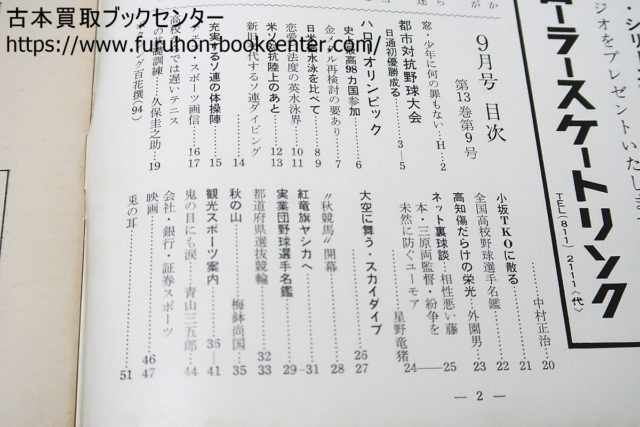 古本買取ブックセンター
https://www.furuhon-bookcenter.com/
9月号 目次
第13巻第9号
窓・少年に何の罪もない・H…2
都市対抗野球大会
日通初優勝成る…3—5
ハロー オリンピック
史上最高98カ国参加…6
金メダル再検討の要あり…7
日米水泳を比べて…8 9
恋愛ご法度の英水泳界…10 11
米ソ対抗陸上のあと…12 13
新旧交代するソ連ダイビング…14
充実するソ連の体操陣…15
スポーツ画信…16 17
高校からでは遅いテニス
訓練…久保圭之助…19
百花撰(94)
小坂TKOに散る
中村正治…20
全国高校野球選手名鑑…21
高知傷だらけの栄光…22
外園男…23
ネット裏球談…相性悪い藤
本・三原両監督・紛争を
未然に防ぐユーモア…星野竜猪
24—25
大空に舞う・スカイダイブ…26 27
〝秋競馬〟開幕…28
紅竜旗ヤシカへ
実業団野球選手名鑑…29—31
都道府県選抜競輪…32 33
秋の山…梅鉢尚国…35
観光スポーツ案内…36—41
鬼の目にも涙…青山三五郎…44
会社・銀行・証券スポーツ
映画…46 47
兎の耳…51
— 2 —
ローラースケートリンク
ジオをプレゼントいたしま
TEL(811)2111(代)